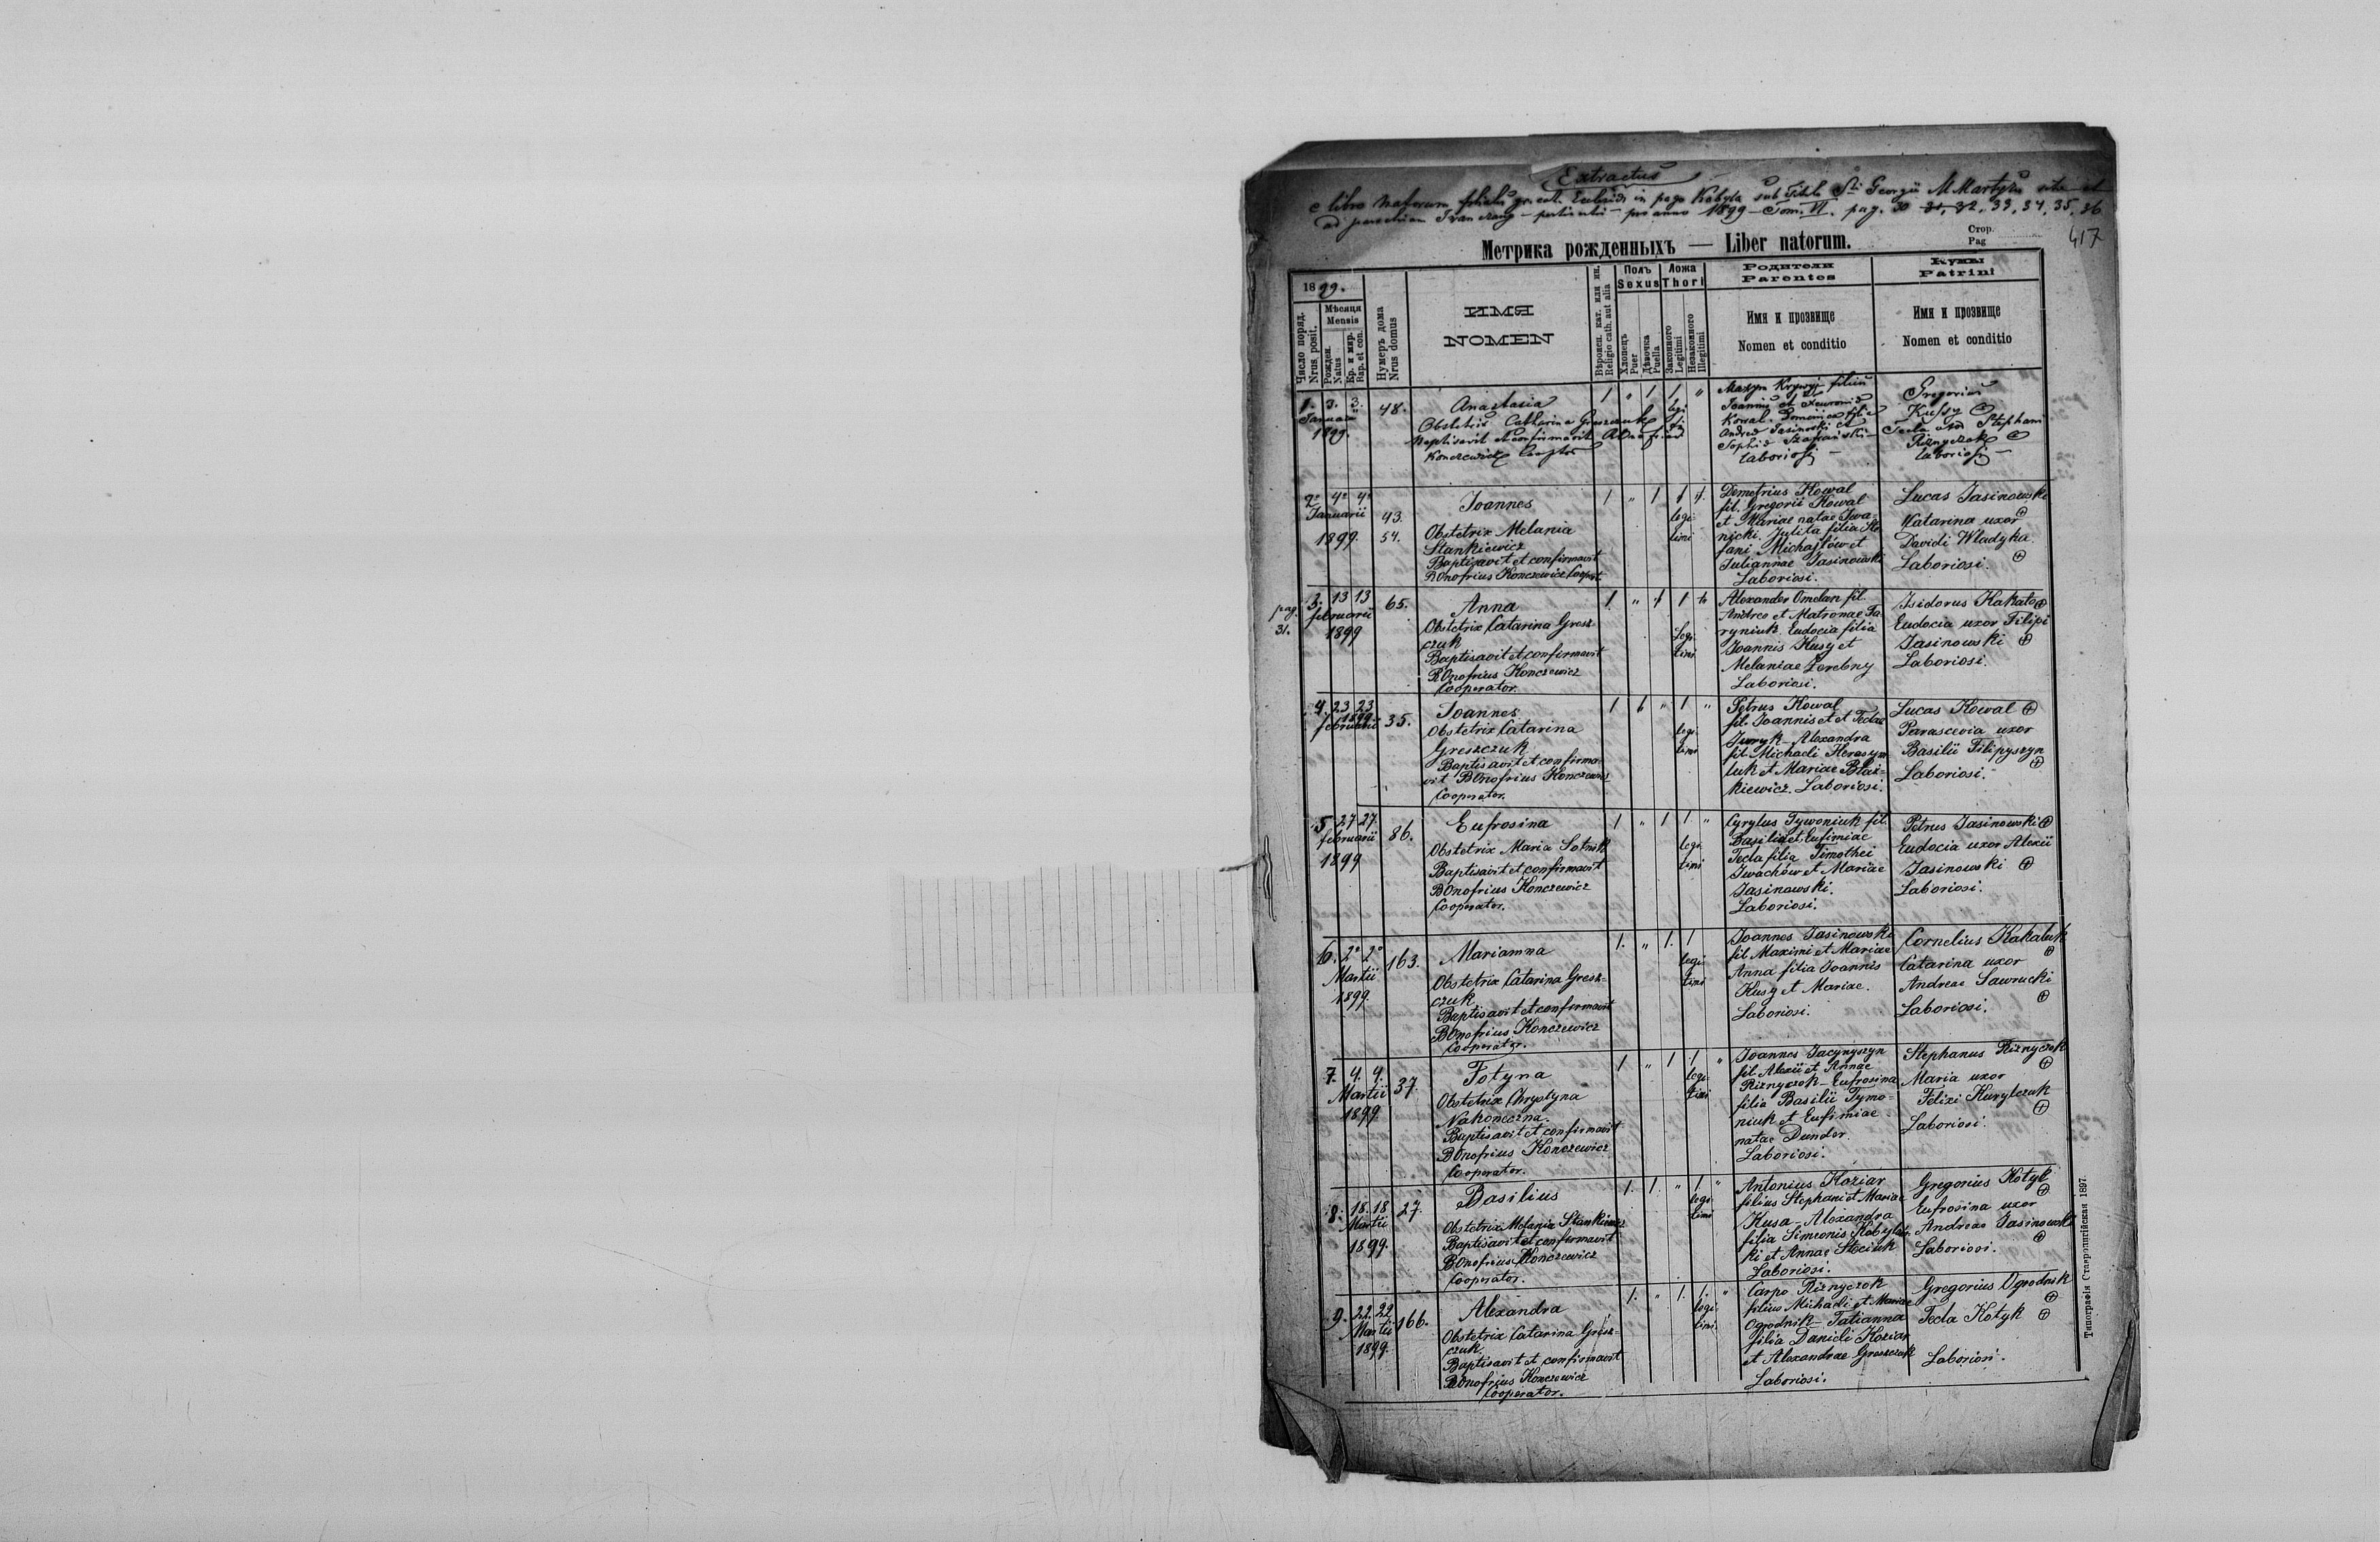 Extractus
e libro natorum filialis gr. cat. Ecclesiae in pago Kobyla sub Titulo Sti Georgii M Martyris sitae et
ad parochiam Iwanczany – pertinentis – pro anno 1899 – Tom. VI. pag. 30 31, 32, 33, 34, 35, 36
417
Метрика рожденныхъ — Liber natorum.
Стор.
Pag
1899.
Число поряд.
Nrus posit.
Мѣсяця
Mensis
Рожден.
Natus
Кр. и мир.
Bap. et con.
Нумеръ дома
Nrus domus
ИМЯ
NOMEN
Вѣроисп. кат. или ин.
Religio cath. aut alia
Полъ
Sexus
Хлопецъ
Puer
Дѣвочка
Puella
Ложа
Thori
Законного
Legitimi
Незаконного
Illegitimi
Родители
Parentes
Имя и прозвище
Nomen et conditio
Кумы
Patrini
Имя и прозвище
Nomen et conditio
1. 3. 3.
Januar
1899.
48.
Anastasia
Obstetrix Catharina Greszczuk
Baptisavit et confirmavit
Konczewicz
1 " 1 1 "
legi
Maxym Krywyj filius
Joannis et
Kowal. Dominica filia
Andreae Jasinowski et
Sophiae
laboriosi
Gregorius
Kusy
Tecla uxor Stephani
Riznyczok
laboriosi
2. 4. 4.
Januarii
1899.
43.
54.
Joannes
Obstetrix Melania
Stankiewicz
Baptisavit et confirmavit
R Onofrius Konczewicz Cooperat.
1 " 1
legi
timi
Demetrius Kowal
fil. Gregorii Kowal
et Mariae natae Iwa-
nicki. Julita filia Ste-
fani Michajłów et
Juliannae Jasinowski
Laboriosi.
Lucas Jasinowski
Katarina uxor
Davidi Wladyka.
Laboriosi.
pag.
31.
3. 13 13
februarii
1899
65.
Anna
Obstetrix Catarina Gresz
czuk
Baptisavit et confirmavit
R Onofrius Konczewicz
Cooperator.
1. " 1 1
Legi
timi
Alexander Omelan fil.
Andreo et Matronae Ta-
ryniuk Eudocia filia
Joannis Kusy et
Melaniae Zerebny
Laboriosi.
Isidorus
Eudocia uxor Filipi
Jasinowski
Laboriosi.
4. 23 23
februarii
1899
35.
Joannes
Obstetrix Catarina
Greszczuk
Baptisavit et confirma-
vit R Onofrius Konczewicz
Cooperator.
1 1 " 1 "
legi
timi
Petrus Kowal
fil. Joannis et et Teclae
Juryk – Alexandra
fil. Michaeli Herasym
luk et Mariae Błaż-
kiewicz. Laboriosi.
Lucas Kowal
Parascevia uxor
Basilii Filipyszyn
Laboriosi.
5 27 27.
februarii
1899
86.
Eufrosina
Obstetrix Maria Sotnyk
Baptisavit et confirmavit
R Onofrius Konczewicz
Cooperator.
1 " 1 1. "
legi
timi
Cyrylus Tywoniuk fil.
Basilio et Eufimiae
Tecla filia Timothei
Iwachów et Mariae
Jasinowski.
Laboriosi.
Petrus Jasinowski
Eudocia uxor Alexii
Jasinowski
Laboriosi.
6. 2. 2.
Martii
1899.
163.
Marianna
Obstetrix Catarina Gresz-
czuk
Baptisavit et confirmavit
R Onofrius Konczewicz
Cooperator.
1. " 1. 1
legi
timi
Joannes Jasinowski
fil Maximi et Mariae
Anna filia Joannis
Kusy et Mariae.
Laboriosi.
Cornelius Kakaluk
Catarina uxor
Andreae Sawrucki
Laboriosi.
7. 4. 4.
Martii
1899.
37.
Fotyna
Obstetrix Chrystyna
Nakoneczna.
Baptisavit et confirmavit
R Onofrius Konczewicz
Cooperator.
1 " 1 1 "
legi
timi
Joannes Jacynyszyn
fil. Alexii et Annae
Riznyczok – Eufrosina
filia Basilii Tymo-
niuk et Eufimiae
natae Dunder.
Laboriosi.
Stephanus Riznyczok
Maria uxor
Felixi Kurylczuk
Laboriosi.
8. 18. 18
Martii
1899.
27.
Basilius
Obstetrix Melania Stankiewicz
Baptisavit et confirmavit
R Onofrius Konczewicz
Cooperator.
1. 1. " 1 "
legi
timi
Antonius Koziar
filius Stephani et Mariae
Kusa. Alexandra
filia Simeonis Kobylań-
ki et Annae Steciuk
Laboriosi.
Gregorius Kotyk
Eufrosina uxor
Andreae Jasinowski
Laboriosi.
9. 22. 22.
Martii
1899.
166.
Alexandra
Obstetrix Catarina Gresz-
czuk.
Baptisavit et confirmavit
R Onofrius Konczewicz
Cooperator.
1. " 1. 1. "
legi
timi
Carpo Riznyczok
filius Michaeli et Mariae
Ogrodnik – Tatianna
filia Danieli Koziar
et Alexandrae Greszczuk
Laboriosi.
Gregorius Ogrodnik
Tecla Kotyk
Laboriosi.
Типографія Ставропигійская 1897.